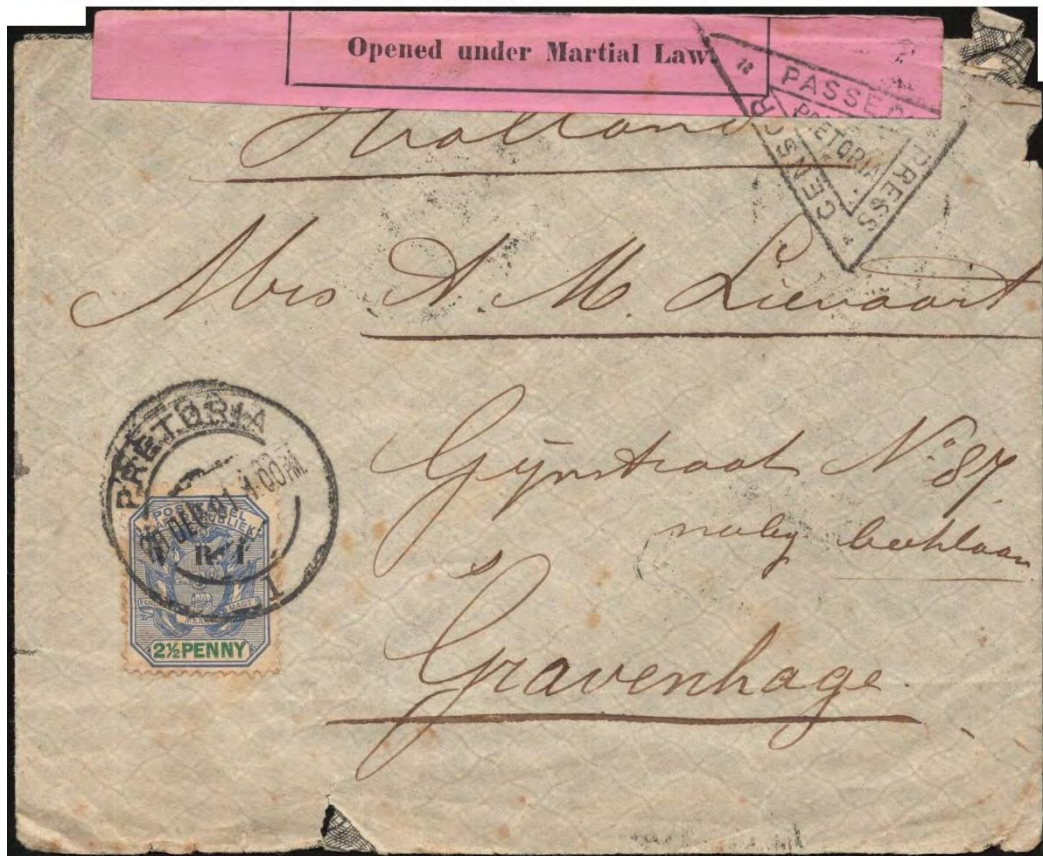 Opened under Martial Law.
PASSED PRESS CENSOR
PRETORIA
Holland
Mrs A. M. Lievaart
Gijnstraat No. 87
naby
s
Gravenhage.
PRETORIA
DEC 01 4.00PM
1
POSTZEGEL
2½PENNY